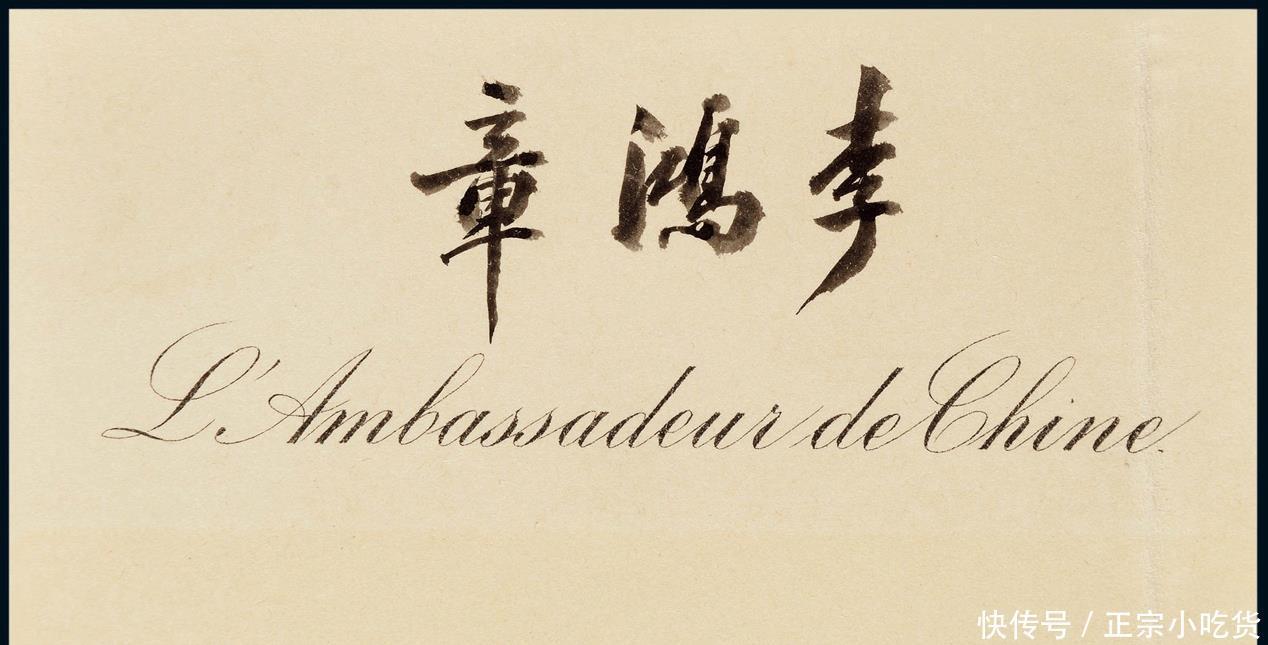 李鴻章
L'Ambassadeur de Chine.
快传号 / 正宗小吃货